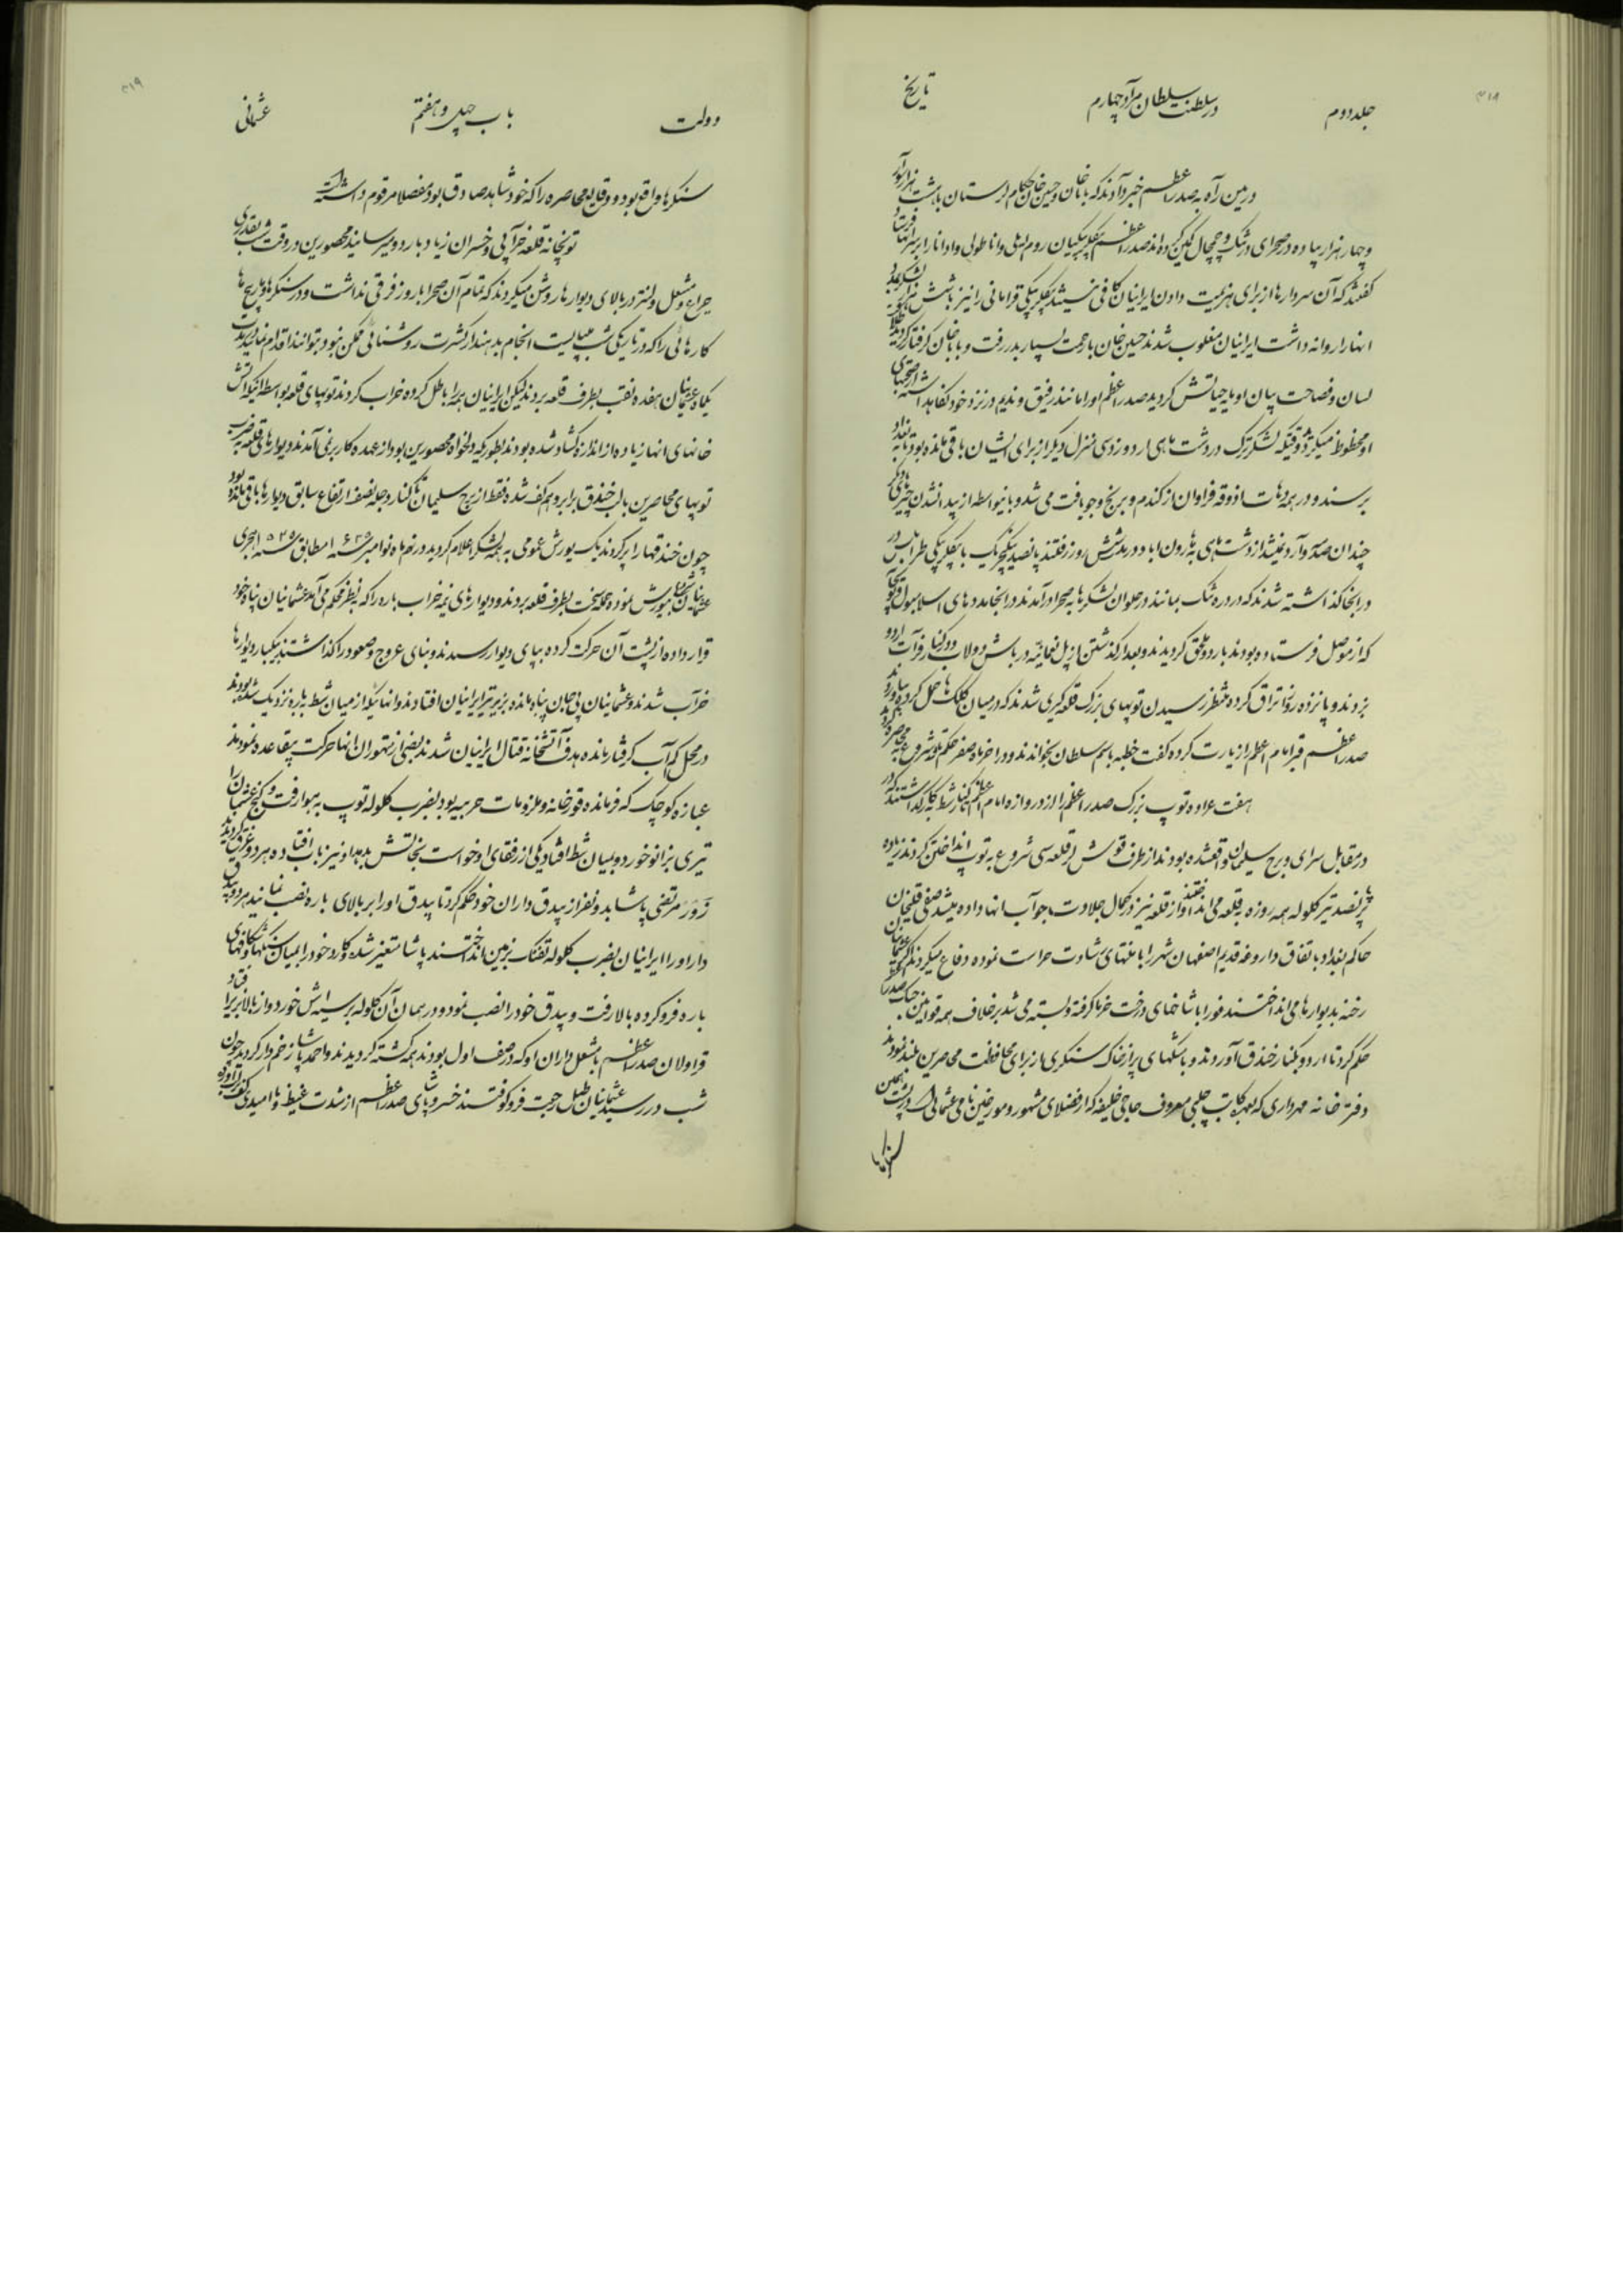 ۳۱۸
جلد دوم در سلطنت سلطان مراد چهارم تاریخ
در بین راه به صدر اعظم خبر دادند که باباخان و حسین خان حکام لرستان با هشت هزار سوار
و چهار هزار پیاده در صحرای درتنگ و چمچال کمین کرده‌اند صدر اعظم بیگلربیگیان روم ایلی و اناطولی و ادانا را بر انها
گفتند که آن سردارها از برای هزیمت دادن ایرانیان کافی نیستند بیگلربیگی قرامانی را نیز با شش هزار
انها را روانه داشت ایرانیان مغلوب شدند حسین خان با زحمت بسیار بدر رفت و باباخان گرفتار گردید
لسان و فصاحت بیان او مایه حیاتش گردید صدر اعظم او را مانند رفیق و ندیم در نزد خود نگاهداشته
او محظوظ میگردید وقتیکه لشکر ترک در دشت ماهی در دو زدسی منزل دیگر از برای ایشان باقی مانده بود تا به بغداد
برسند و در همه دهات اذوقه فراوان از گندم و برنج و جو یافت می شد و باینواسطه از پیدا نشدن چیزهای دیگر
چندان صدمه وارد نمیشد از دشت ماهی به هارون اباد و در مدت شش روز رفتند پانصد ینگیچریک با بیگلربیگی طرابلس
در انجا گذاشته شدند که در دره تنگ بمانند در حلوان لشکرها به صحرا در آمدند در انجا مددهای اسلامبول و توپچی
که از موصل فرستاده بودند باردو ملحق گردیدند و بعد از گذشتن از پل نعمانیه در باش دولاب در کنار فرات اردو
زدند و پانزده روز اتراق کرده منتظر رسیدن توپهای بزرگ قلعه گیری شدند که در میان کلک ها حمل کرده بیاورند
صدر اعظم قبر امام اعظم را زیارت کرده گفت خطبه باسم سلطان بخوانند و در اخر ماه صفر حکم بشروع محاصره
هفت عراده توپ بزرگ صدر اعظم را از دروازه امام اعظم تا کنار شط بکار گذاشتند که
در مقابل سرای و برج سلیمان واقعشده بودند از طرف قوش لر قلعه سی شروع به توپ انداختن کردند زیاده
بر پانصد تیر گلوله همه روزه به قلعه می انداختند و از قلعه نیز در کمال جلادت جواب انها داده میشد صفی قلیخان
حاکم بغداد با تفاق داروغه قدیم اصفهان شهر را با منتهای شادت حراست نموده دفاع میکردند اگر عثمانیان
رخنه بدیوارها می انداختند فورا با شاخهای درخت خرما گرفته و بسته می شد برخلاف همه قوانین جنک صدر اعظم
حکم کرد تا اردو بکنار خندق آوردند و با سنگهای پر از خاک سنگری از برای محافظت محاصرین بلند نمودند
دفتر خانه مهرداری که بعهده کاتب چلبی معروف حاجی خلیفه که از فضلای مشهور و مورخین نامی عثمانی است در پشت همین
سنگرها
۳۱۹
دولت باب چهل و هفتم عثمانی
سنگرها واقع بود و وقایع محاصره را که خود شاهد صادق بود مفصلا مرقوم داشته است
توپخانه قلعه خرابی و خسران زیاد باردو میرسانید محصورین در وقت شب بقدری
چراغ و مشعل و لنتر در بالای دیوارها روشن میکردند که تمام آن صحرا با روز فرقی نداشت و در سنگرها و مارپیچ ها
کارهائی را که در تاریکی شب میبایست انجام بدهند از کثرت روشنائی ممکن نبود بتوانند اقدام نمایند در مدت
یکماه عثمانیان هفده نقب بطرف قلعه بردند لیکن ایرانیان همه را باطل کرده خراب کردند توپهای قلعه بواسطه اینکه آتش
خانهای انها زیاده از اندازه گشاد شده بودند بطوریکه دلخواه محصورین بود از عهده کار برنمی آمدند دیوارهای قلعه به ضرب
توپهای محاصرین با لب خندق برابر و هم کف شده فقط از برج سلیمان تا کنار دجله نصف ارتفاع سابق دیوارها باقی مانده بود
چون خندقها را پر کردند یک یورش عمومی به همه لشکر اعلام گردید در نهم ماه نوامبر سنه ۱۶۲۵ مطابق سنه ۱۰۳۵ هجری
عثمانیان یورش نموده حمله سخت بطرف قلعه بردند و دیوارهای نیمه خراب باره را که بنظر محکم می آمد عثمانیان پناه خود
قرار داده از پشت آن حرکت کرده بپای دیوار رسیدند و بنای عروج و صعود را گذاشتند یکبار دیوارها
خراب شدند و عثمانیان بی جان پناه مانده بزیر تیر ایرانیان افتادند و انهائیکه از میان شط به باره نزدیک شده بودند
در محل کم آب گرفتار مانده هدف آتشخانه قتال ایرانیان شدند بعضی از متهوران انها حرکت بیقاعده نمودند
عبازه کوچک که فرمانده قورخانه و ملزومات حربیه بود بضرب گلوله توپ به هوا رفت و کنج عثمان را
تیری بزانو خورد و بمیان شط افتاد یکی از رفقای او خواست نجاتش بدهد او نیز باب افتاده هر دو غرق گردیدند
زور مرتضی پاشا بدو نفر از بیدق داران خود حکم کرد تا بیدق او را بر بالای باره نصب نمایند هر دو بیدق
دار او را ایرانیان بضرب گلوله تفنگ بزمین انداختند پاشا متغیر شده کارد خود را بمیان سنگها و شکافهای
باره فرو کرده بالا رفت و بیدق خود را نصب نمود و در همان آن گلوله بر سینه اش خورد و از بالا بزیر افتاد
قراولان صدر اعظم با مشعل داران او که در صف اول بودند همه کشته گردیدند و احمد پاشا زخم دار گردید چون
شب در رسید عثمانیان طبل رجعت فرو کوفتند خسرو پاشای صدر اعظم از شدت غیظ و ناامیدی